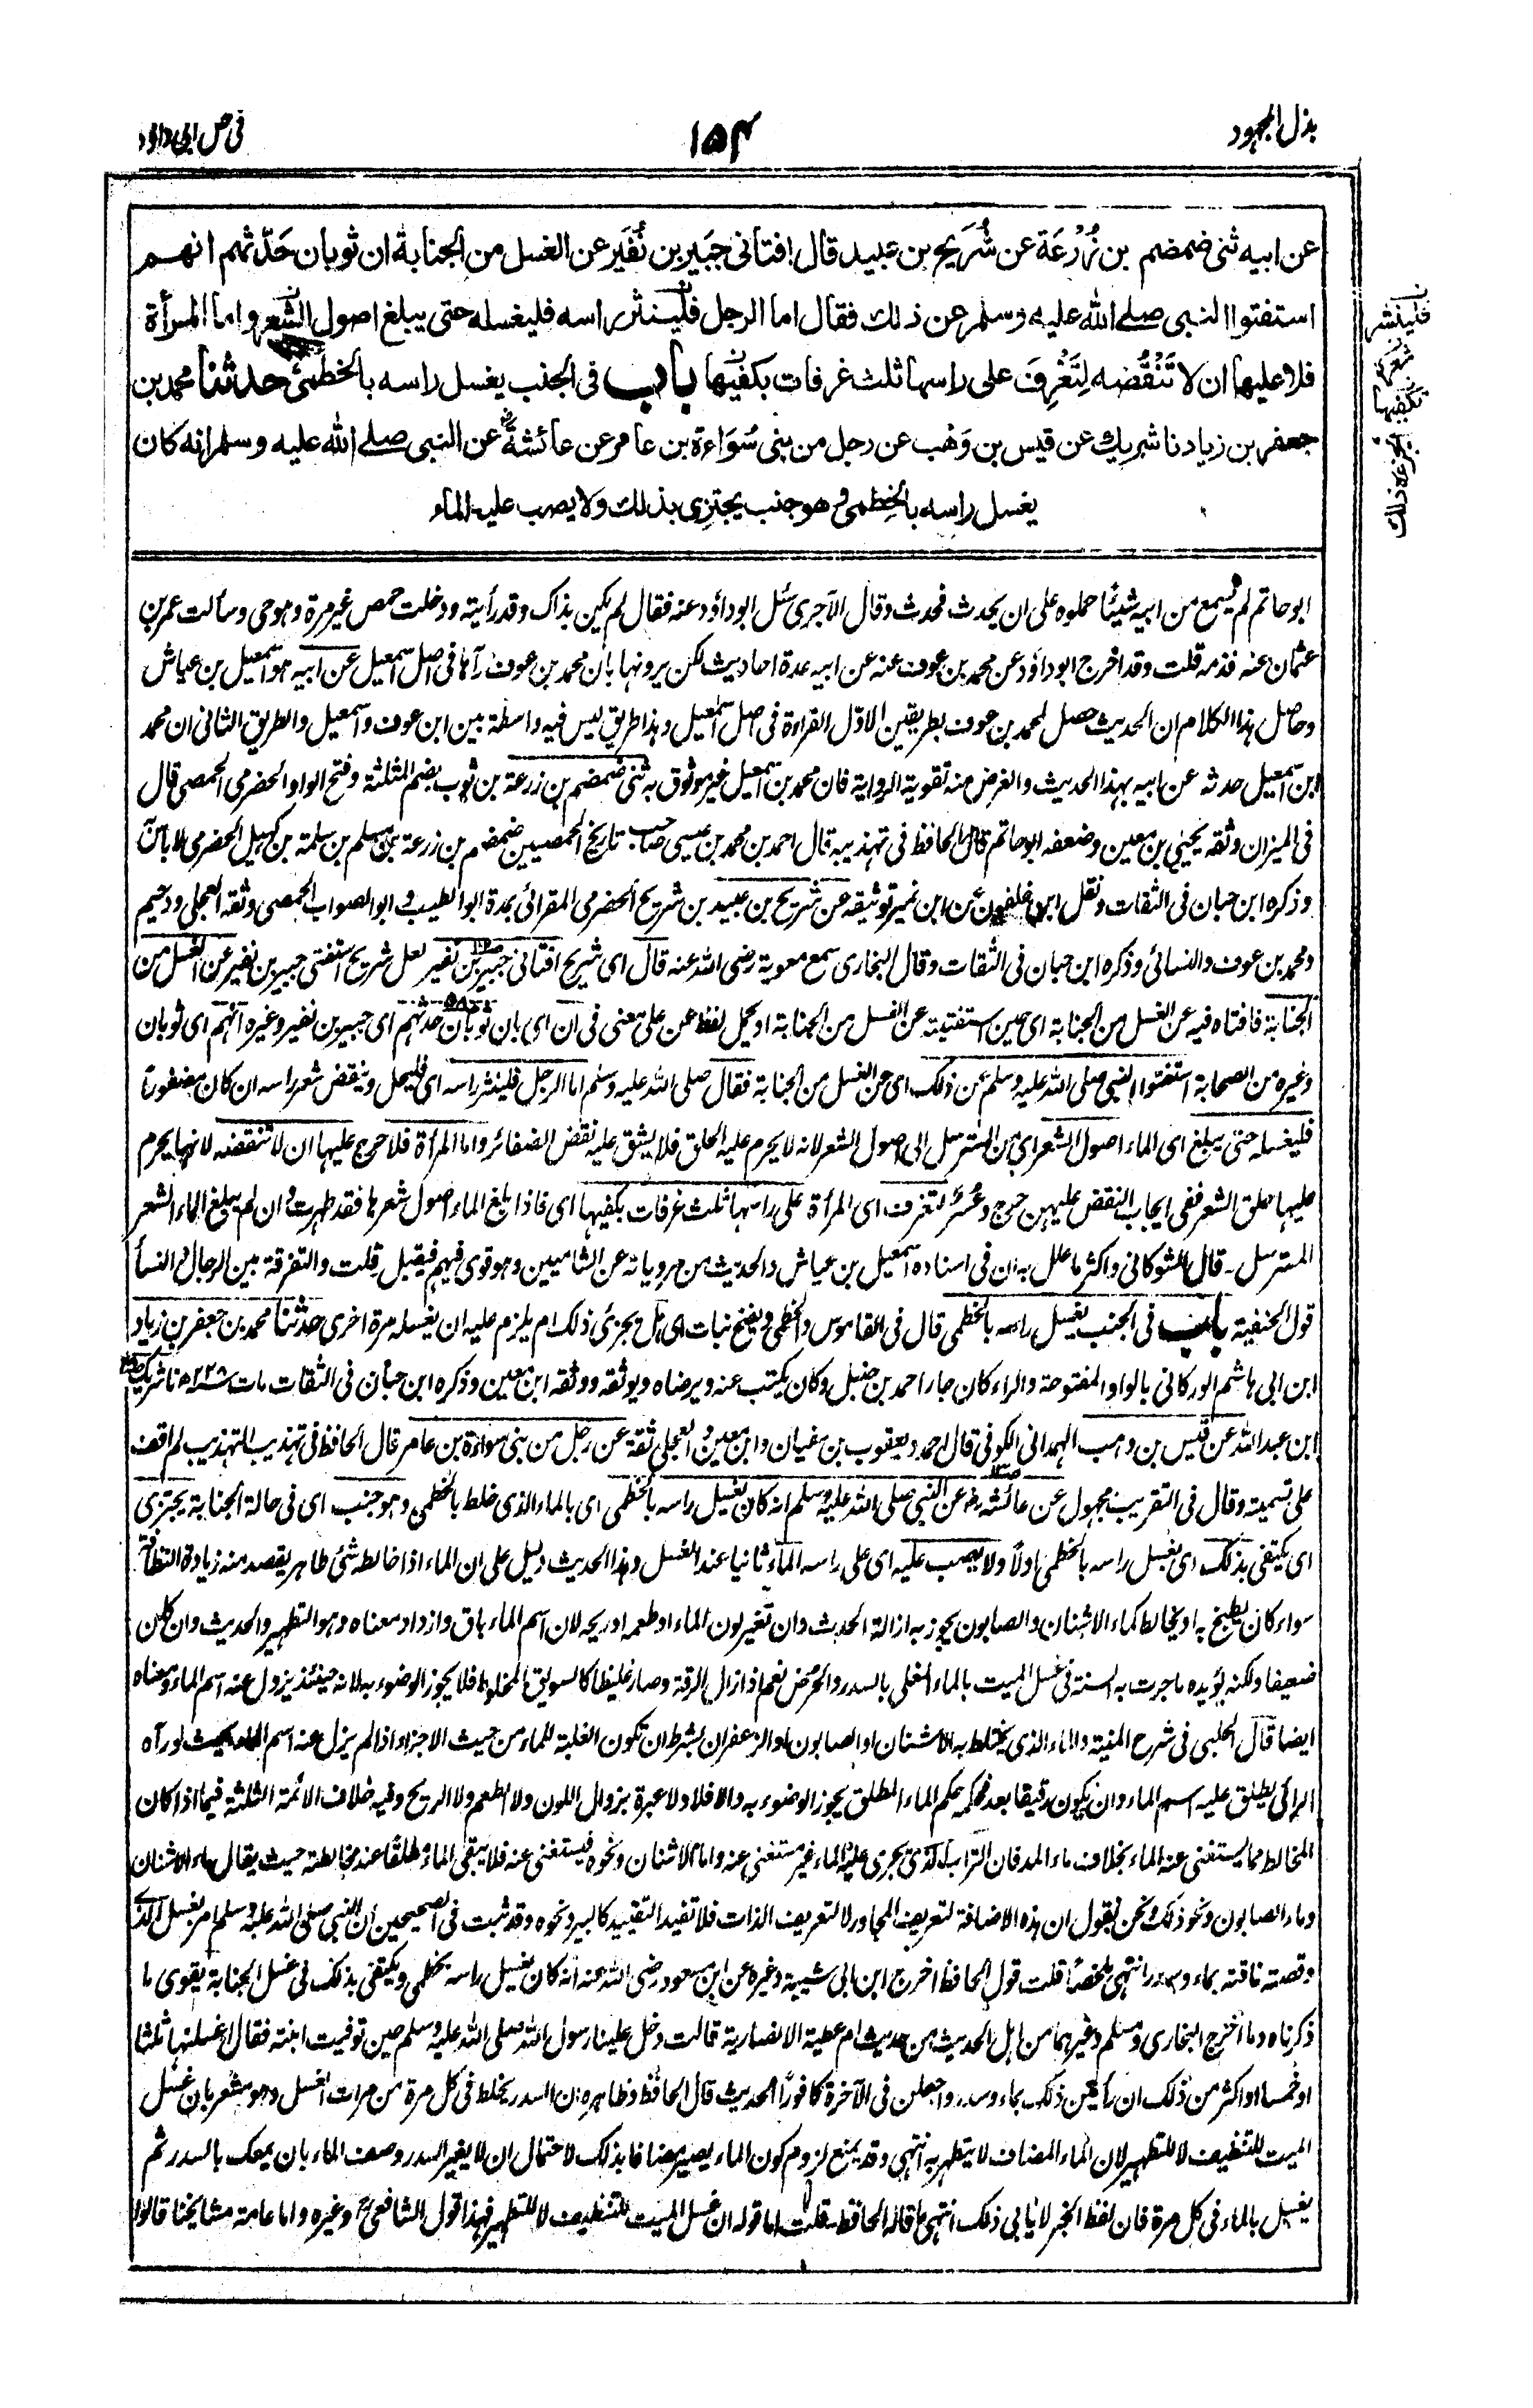 بذل المجهود
١٥٤
فی حل ابی داؤد
عن ابيه ثنى ضمضم بن زُرْعَة عن شُرَيح بن عبيد قال افتانى جبير بن نُفَير عن الغسل من الجنابة ان ثوبان حَدّثهم انهم
استفتوا النبى صلے الله عليه وسلم عن ذلك فقال اما الرجل فلينشر راسه فليغسله حتى يبلغ اصول الشعر واما المرأة
فلا عليها ان لا تَنْقُضه لِتَغْرِفَ على راسها ثلث غرفات بكفيها باب فى الجنب يغسل راسه بالخطمى حدثنا محمد بن
جعفر بن زياد نا شريك عن قيس بن وَهْب عن رجل من بنى سُوَاءة بن عامر عن عائشة عن النبى صلے الله عليه وسلم انه كان
يغسل راسه بالخِطمى وهو جنب يجتزى بذلك ولا يصب عليه الماء
فلينشر
شعره
بكفيها
يجزئه ذلك
ابو حاتم لم يسمع من ابيه شيئا حملوه على ان يحدث فحدث وقال الآجرى سئل ابو داؤد عنه فقال لم يكن بذاك وقد رأيته ودخلت حمص غير مرة وهو حى وسألت عمرو بن
عثمان عنه فذمه قلت وقد اخرج ابو داؤد عن محمد بن عوف عنه عن ابيه عدة احاديث لكن يرونها بان محمد بن عوف رآها فى اصل اسمعيل عن ابيه هو اسمعيل بن عياش
وحاصل هذا الكلام ان الحديث حصل لمحمد بن عوف بطريقين الاوّل القراءة فى اصل اسمعيل وهذا طريق ليس فيه واسطة بين ابن عوف واسمعيل والطريق الثانى ان محمد
ابن اسمعيل حدثه عن ابيه بهذا الحديث والغرض منه تقوية الرواية فان محمد بن اسمعيل غير موثوق به ثنى ضمضم بن زرعة بن ثوب بضم المثلثة وفتح الواو الحضرمى الحمصى قال
فى الميزان وثقه يحيى بن معين وضعفه ابو حاتم قال الحافظ فى تهذيبه قال احمد بن محمد بن عيسى صاحب تاريخ الحمصيين ضمضم بن زرعة بن مسلم بن سلمة بن كهيل الحضرمى لا بأس به
وذكره ابن حبان فى الثقات ونقل ابن خلفون عن ابن نمير توثيقه عن شريح بن عبيد بن شريح الحضرمى المقرائى بمدة ابو الطيب و ابو الصواب الحمصى وثقه العجلى ودحيم
ومحمد بن عوف والنسائى وذكره ابن حبان فى الثقات وقال البخارى سمع معوية رضى الله عنه قال اى شريح افتانى جبير بن نفير لعل شريح استفتى جبير بن نفير عن الغسل من
الجنابة فافتاه فيه عن الغسل من الجنابة اى حين استفتيته عن الغسل من الجنابة او يحمل لفظ عن على معنى فى ان اى بان ثوبان حدثهم اى جبير بن نفير وغيره انهم اى ثوبان
وغيره من الصحابة استفتوا النبى صلى الله عليه وسلم عن ذلك اى عن الغسل من الجنابة فقال صلى الله عليه وسلم اما الرجل فلينشر راسه اى فليحل وينقض شعر راسه ان كان مضفورا
فليغسله حتى يبلغ اى الماء اصول الشعر اى من المسترسل الى اصول الشعر لانه لا يحرم عليه الحلق فلا يشق عليه نقض الضفائر واما المرأة فلا حرج عليها ان لا تنقضه لانها يحرم
عليها حلق الشعر ففى ايجاب النقض عليهن حرج وعُسْر لتغرف اى المرأة على راسها ثلث غرفات بكفيها اى فاذا بلغ الماء اصول شعرها فقد طهرت وان لم يبلغ الماء الشعر
المسترسل - قال الشوكانى واكثر ما علل به ان فى اسناده اسمعيل بن عياش والحديث من مروياته عن الشاميين وهو قوى فيهم فيقبل قلت والتفرقة بين الرجال والنسأ
قول الحنفية باب فى الجنب يغسل راسه بالخطمى قال فى القاموس والخطمى ويفتح نبات اى هل يجزئ ذلك ام يلزم عليه ان يغسله مرة اخرى حدثنا محمد بن جعفر بن زياد
ابن ابى هاشم الوركانى بالواو المفتوحة والراء كان جار احمد بن حنبل وكان يكتب عنه ويرضاه ويوثقه ووثقه ابن معين وذكره ابن حبان فى الثقات مات سنة ٢٢٨ه نا شريك
ابن عبد الله عن قيس بن وهب الهمدانى الكوفى قال احمد ويعقوب بن سفيان وابن معين والعجلى ثقة عن رجل من بنى سواءة بن عامر قال الحافظ فى تهذيب التهذيب لم اقف
على تسميته وقال فى التقريب مجهول عن عائشة رض عن النبى صلى الله عليه وسلم انه كان يغسل راسه بالخطمى اى بالماء الذى خلط بالخطمى وهو جنب اى فى حالة الجنابة يجتزى
اى يكتفى بذلك اى بغسل راسه بالخطمى اولاً ولا يصب عليه اى على راسه الماء ثانيا عند الغسل وهذا الحديث دليل على ان الماء اذا خالطه شئ طاهر يقصد منه زيادة النظافة
سواء كان يطبخ به او يخالط كماء الاشنان والصابون يجوز به ازالة الحدث وان تغير لون الماء او طعمه او ريحه لان اسم الماء باق وازداد معناه وهو التطهير والحديث وان كان
ضعيفا ولكنه يؤيده ما جرت به السنة فى غسل الميت بالماء المغلى بالسدر والحرض نعم اذا زال الرقة وصار غليظا كالسويق المخلوط فلا يجوز الوضوء به لانه حينئذ يزول عنه اسم الماء ومعناه
ايضا قال الحلبى فى شرح المنية والماء الذى يختلط به الاشنان او الصابون او الزعفران بشرط ان تكون الغلبة للماء من حيث الاجزاء اذا لم يزل عنه اسم الماء بحيث لو رآه
الرائى يطلق عليه اسم الماء وان يكون رقيقا بعد فحكمه حكم الماء المطلق يجوز الوضوء به والا فلا ولا عبرة بزوال اللون ولا الطعم ولا الريح وفيه خلاف الائمة الثلثة فيما اذا كان
المخالط مما يستغنى عنه الماء بخلاف ماء المد فان التراب الذى يجرى عليه الماء غير مستغنى عنه واما الاشنان ونحوه فيستغنى عنه فلا يبقى الماء مطلقا عند مخالطته حيث يقال ماء الاشنان
وماء الصابون ونحو ذلك ونحن نقول ان هذه الاضافة لتعريف المجاور لا لتعريف الذات فلا تفيد التقييد كالبير ونحوه وقد ثبت فى الصحيحين ان النبى صلى الله عليه وسلم امر بغسل الذى
وقصته ناقته بماء وسدر انتهى ملخصا قلت قول الحافظ اخرج ابن ابى شيبة وغيره عن ابن مسعود رضى الله عنه انه كان يغسل راسه بخطمى ويكتفى بذلك فى غسل الجنابة يقوى ما
ذكرناه وما اخرج البخارى ومسلم وغيرهما من اهل الحديث من حديث ام عطية الانصارية قالت دخل علينا رسول الله صلى الله عليه وسلم حين توفيت ابنته فقال اغسلنها ثلثا
او خمسا او اكثر من ذلك ان رأيتن ذلك بماء وسدر واجعلن فى الآخرة كافورًا الحديث قال الحافظ وظاهره ان السدر يخلط فى كل مرة من مرات الغسل وهو مشعر بان غسل
الميت للتنظيف لا للتطهير لان الماء المضاف لا يتطهر به انتهى وقد يمنع لزوم كون الماء يصير مضافا بذلك لاحتمال ان لا يغير السدر وصف الماء بان يمعك بالسدر ثم
يغسل بالماء فى كل مرة فان لفظ الخبر لا يابى ذلك انتهى ما قاله الحافظ - قلت اما قوله ان غسل الميت للتنظيف لا للتطهير فهذا قول الشافعى وغيره واما عامة مشايخنا قالوا